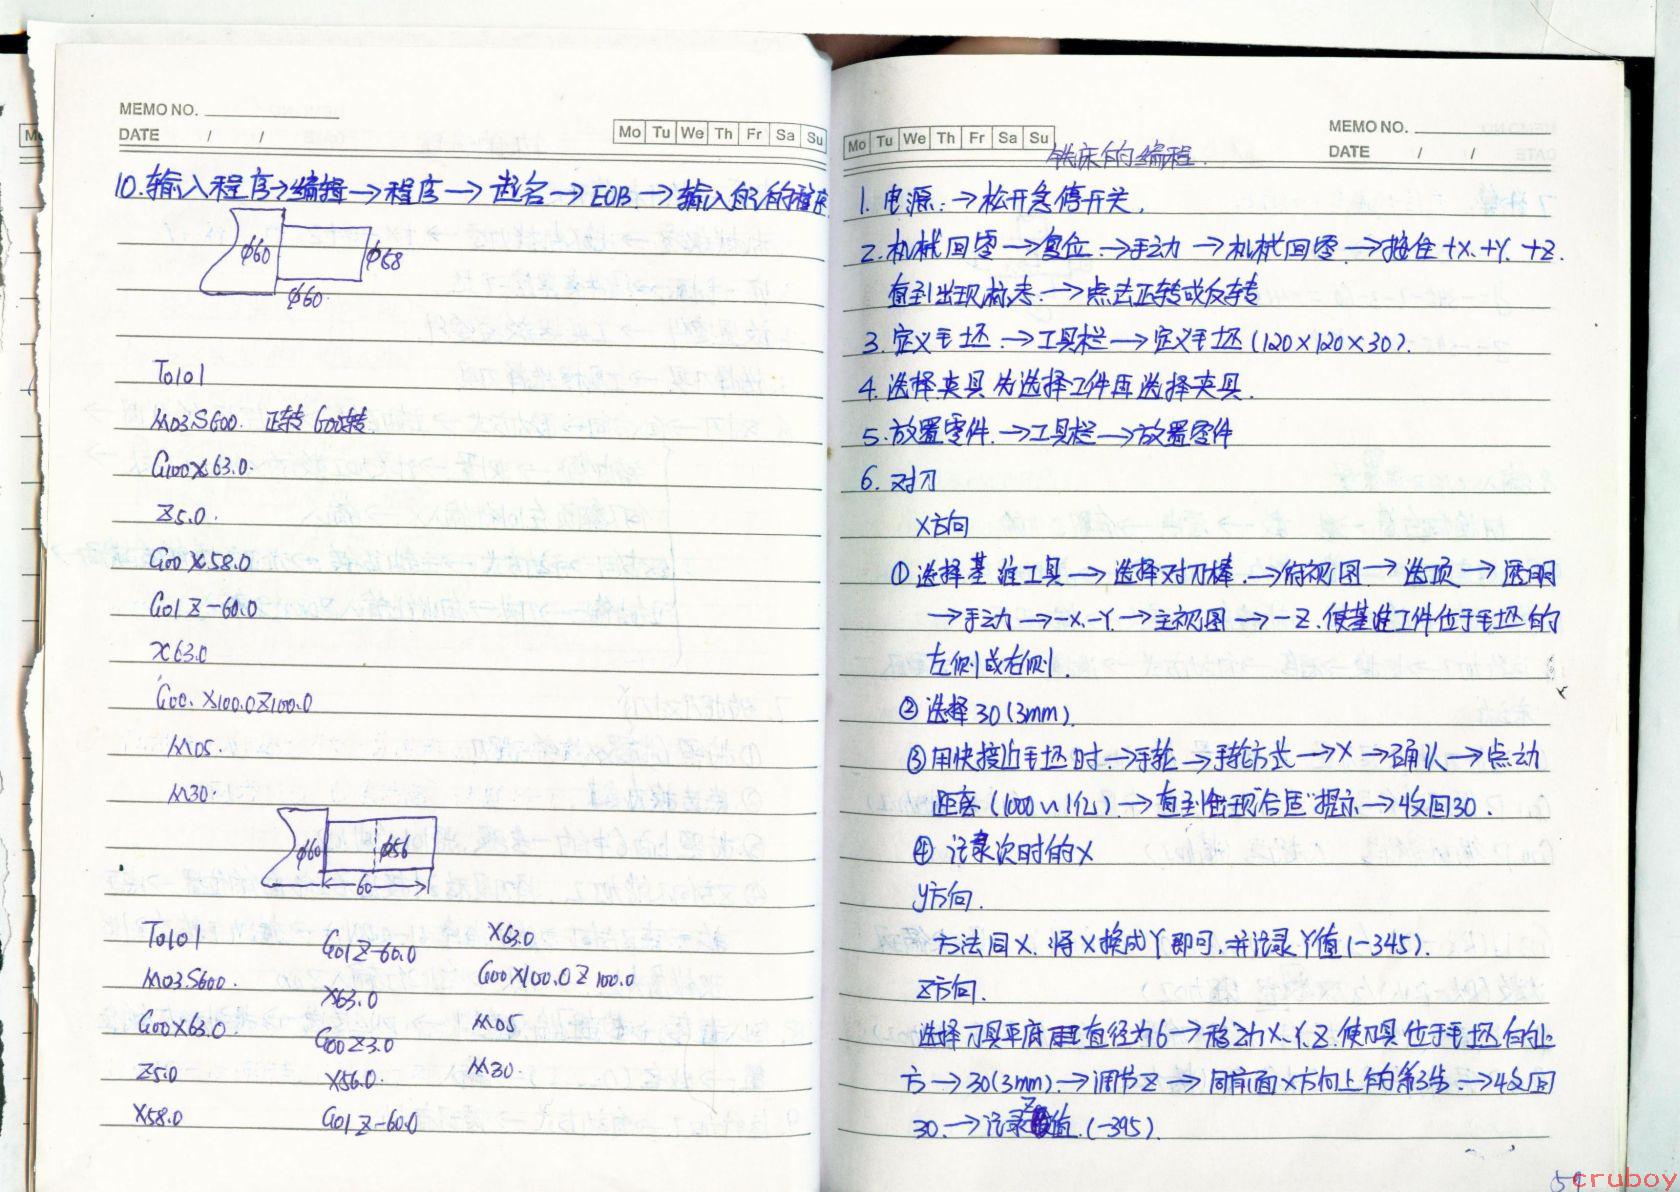 MEMO NO.
DATE / /
Mo Tu We Th Fr Sa Su
10.输入程序→编辑→程序→起名→EOB→输入的程序
φ60
φ68
φ60
T0101
M03S600. 正转600转
G00X63.0.
Z5.0.
G00X58.0
G01Z-60.0
X63.0
G00.X100.0Z100.0
M05.
M30.
φ60
φ56
60
T0101
M03S600.
G00X63.0.
Z5.0
X58.0
G01Z-60.0
X63.0
G00Z3.0
X56.0.
G01Z-60.0
X63.0
G00X100.0Z100.0
M05
M30.
Mo Tu We Th Fr Sa Su
MEMO NO.
DATE / /
铣床的编程.
1.电源:→松开急停开关.
2.机械回零→复位.→手动→机械回零→按住+X.+Y.+Z.
直到出现标志.→点击正转或反转
3.定义毛坯.→工具栏→定义毛坯(120×120×30).
4.选择夹具 先选择工件再选择夹具.
5.放置零件.→工具栏→放置零件
6.对刀
X方向
①选择基准工具→选择对刀棒.→俯视图→选项→透明
→手动→-X.-Y.→主视图→-Z.使基准工件位于毛坯的
左侧或右侧.
②选择30(3mm).
③用快接近毛坯时.→手轮→手轮方式→X→确认→点动
距离(1000~1亿)→直到出现"合适"提示→收回30.
④记录次时的X
y方向.
方法同X.将X换成Y即可,并记录Y值(-345).
Z方向.
选择刀具平底直径为6→移动X.Y.Z.使刀具位于毛坯的上
方→30(3mm).→调节Z→同前面X方向上的条.→收回
30.→记录Z值.(-395).
cruboy